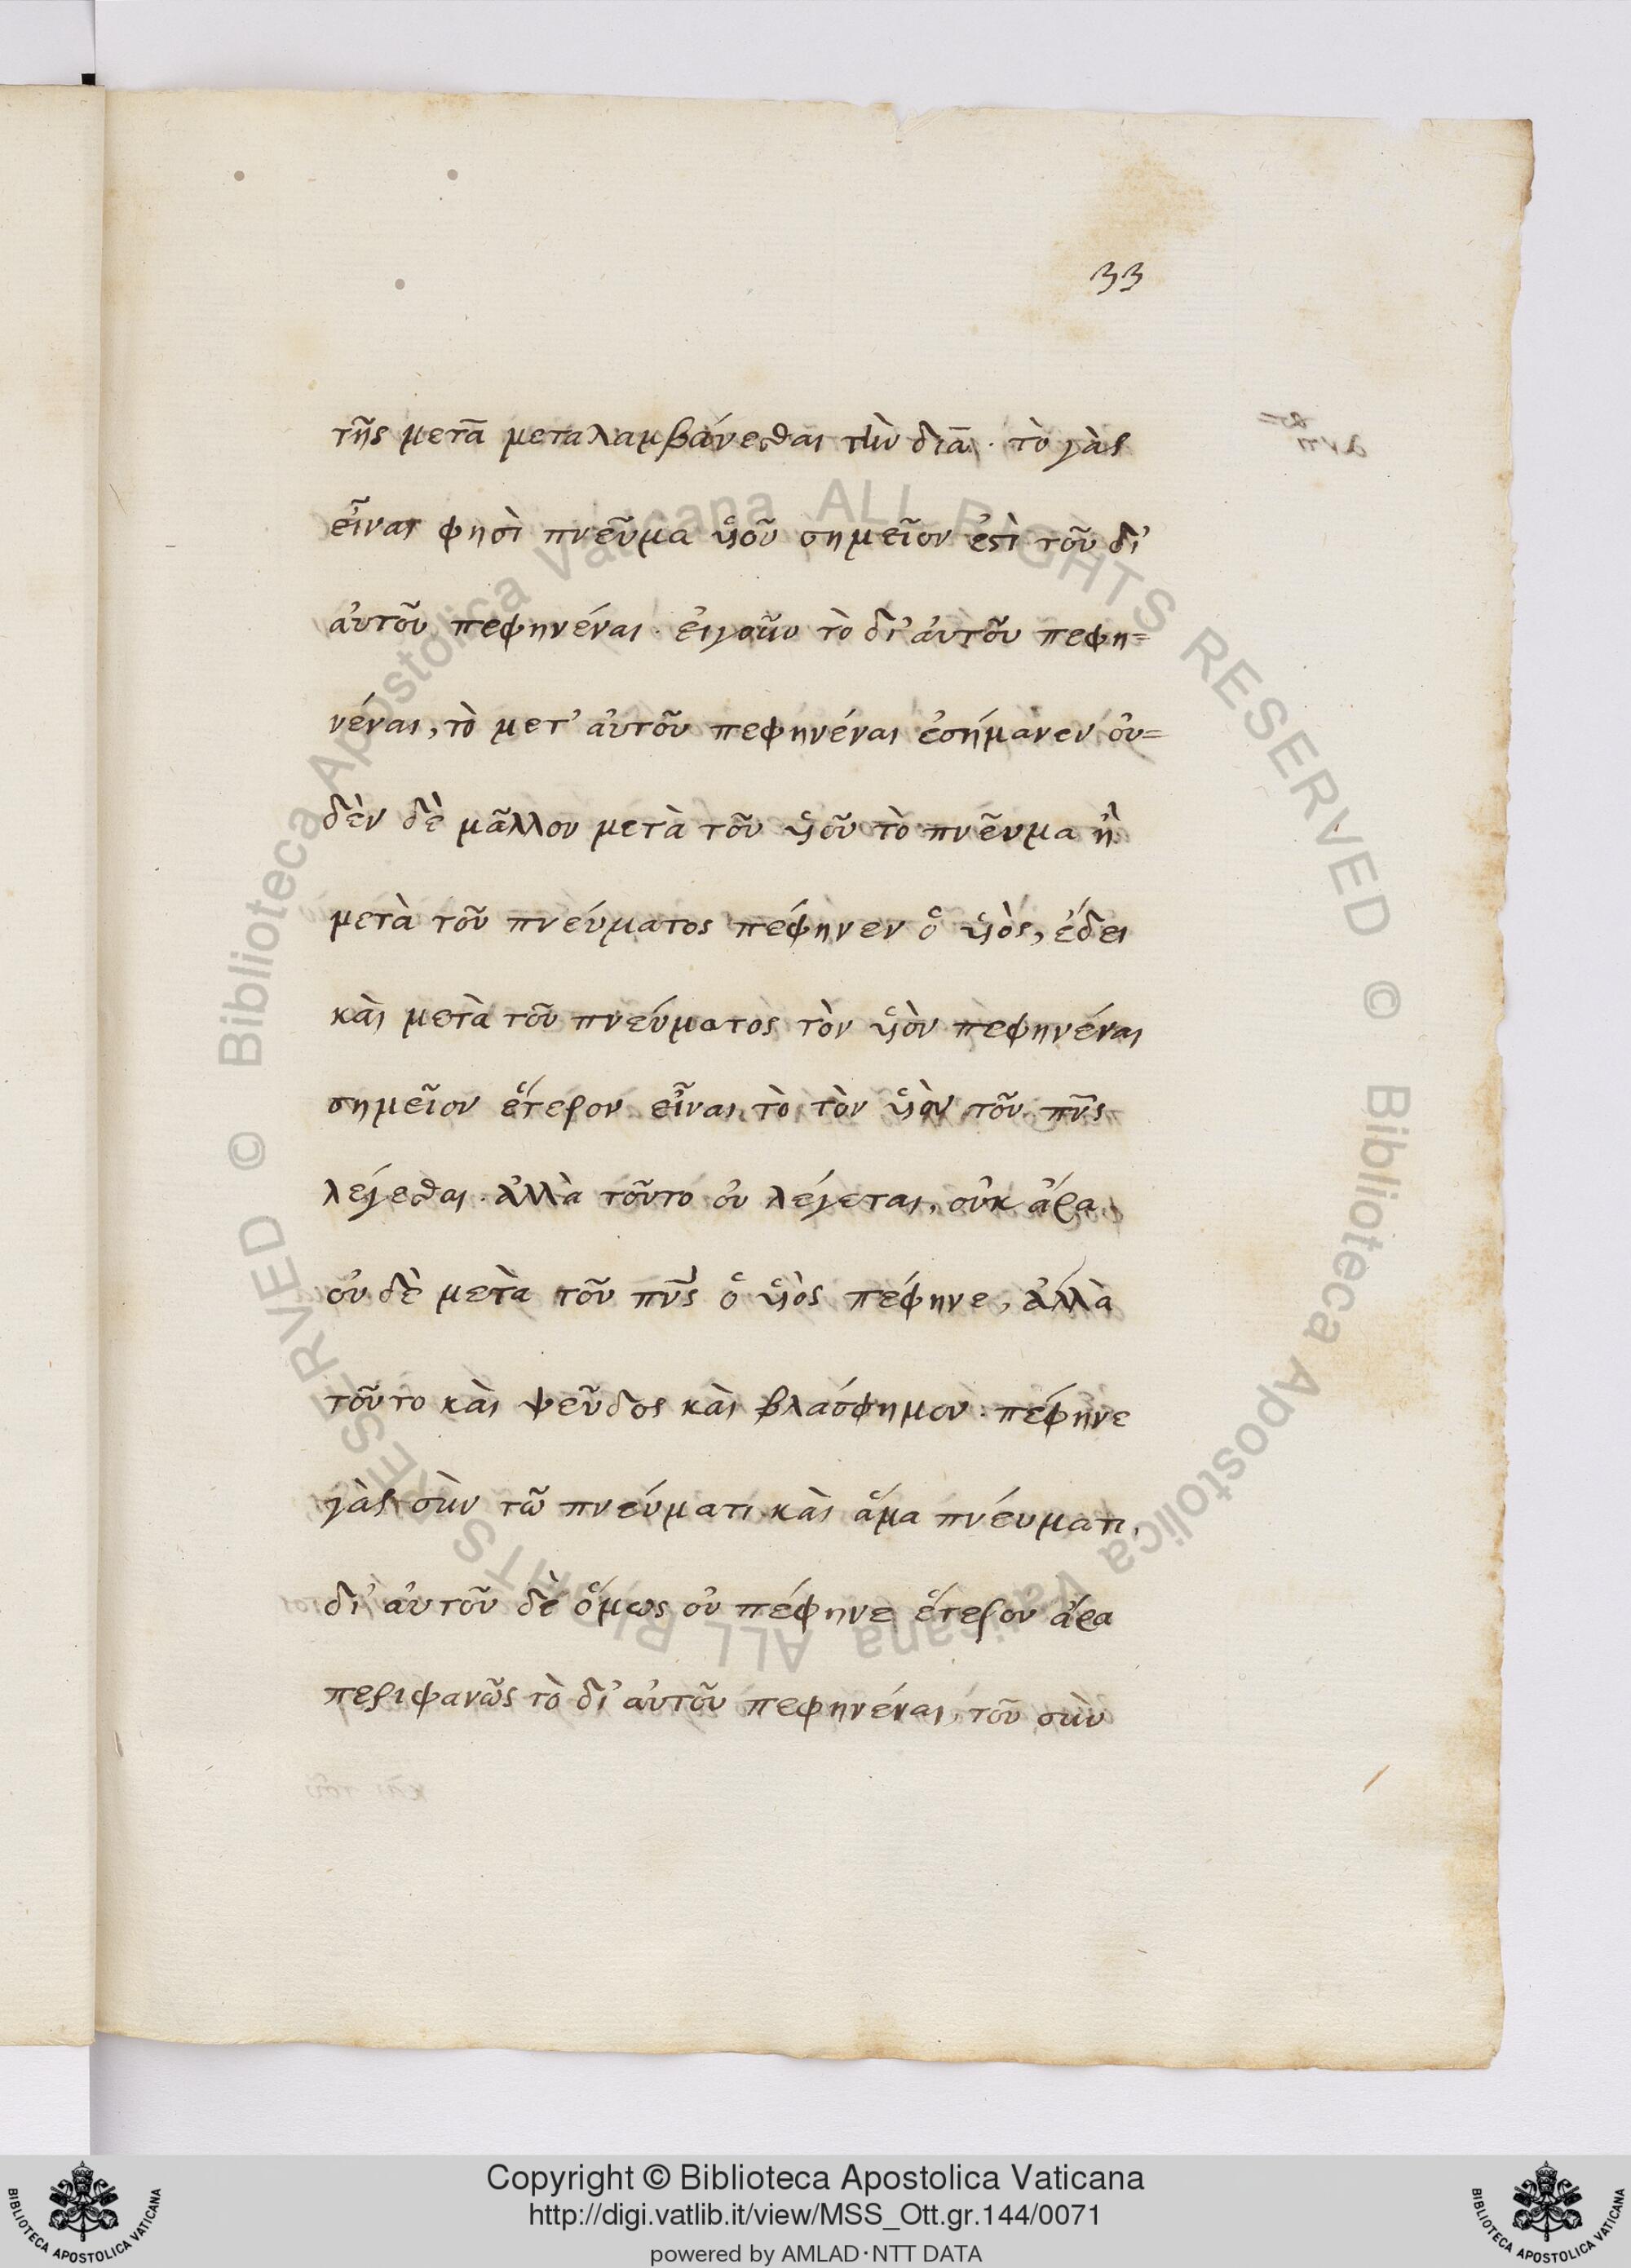 33
τῆς μετὰ μεταλαμβάνεσθαι τὴν διὰ · τὸ γὰρ
εἶναι φησὶ πνεῦμα υἱοῦ σημεῖον ἐστὶ τοῦ δι'
αὐτοῦ πεφηνέναι · εἰ γοῦν τὸ δι' αὐτοῦ πεφη=
νέναι, τὸ μετ' αὐτοῦ πεφηνέναι ἐσήμανεν οὐ=
δὲν δὲ μᾶλλον μετὰ τοῦ υἱοῦ τὸ πνεῦμα ἢ
μετὰ τοῦ πνεύματος πέφηνεν ὁ υἱὸς, ἔδει
καὶ μετὰ τοῦ πνεύματος τὸν υἱὸν πεφηνέναι
σημεῖον ἕτερον εἶναι τὸ τὸν υἱὸν τοῦ πνς
λέγεσθαι · ἀλλὰ τοῦτο οὐ λέγεται, οὐκ ἄρα
οὐ δὲ μετὰ τοῦ πνς ὁ υἱὸς πέφηνε, ἀλλὰ
τοῦτο καὶ ψεῦδος καὶ βλάσφημον · πέφηνε
γὰρ σὺν τῶ πνεύματι καὶ ἅμα πνέυματι,
δι' αὐτοῦ δὲ ὅμως οὐ πέφηνε ἕτερον ἄρα
περιφανῶς τὸ δι' αὐτοῦ πεφηνέναι, τοῦ σὺν
© Biblioteca Apostolica Vaticana ALL RIGHTS RESERVED
© Biblioteca Apostolica Vaticana ALL RIGHTS RESERVED
Copyright © Biblioteca Apostolica Vaticana
http://digi.vatlib.it/view/MSS_Ott.gr.144/0071
powered by AMLAD·NTT DATA
BIBLIOTECA APOSTOLICA VATICANA
BIBLIOTECA APOSTOLICA VATICANA